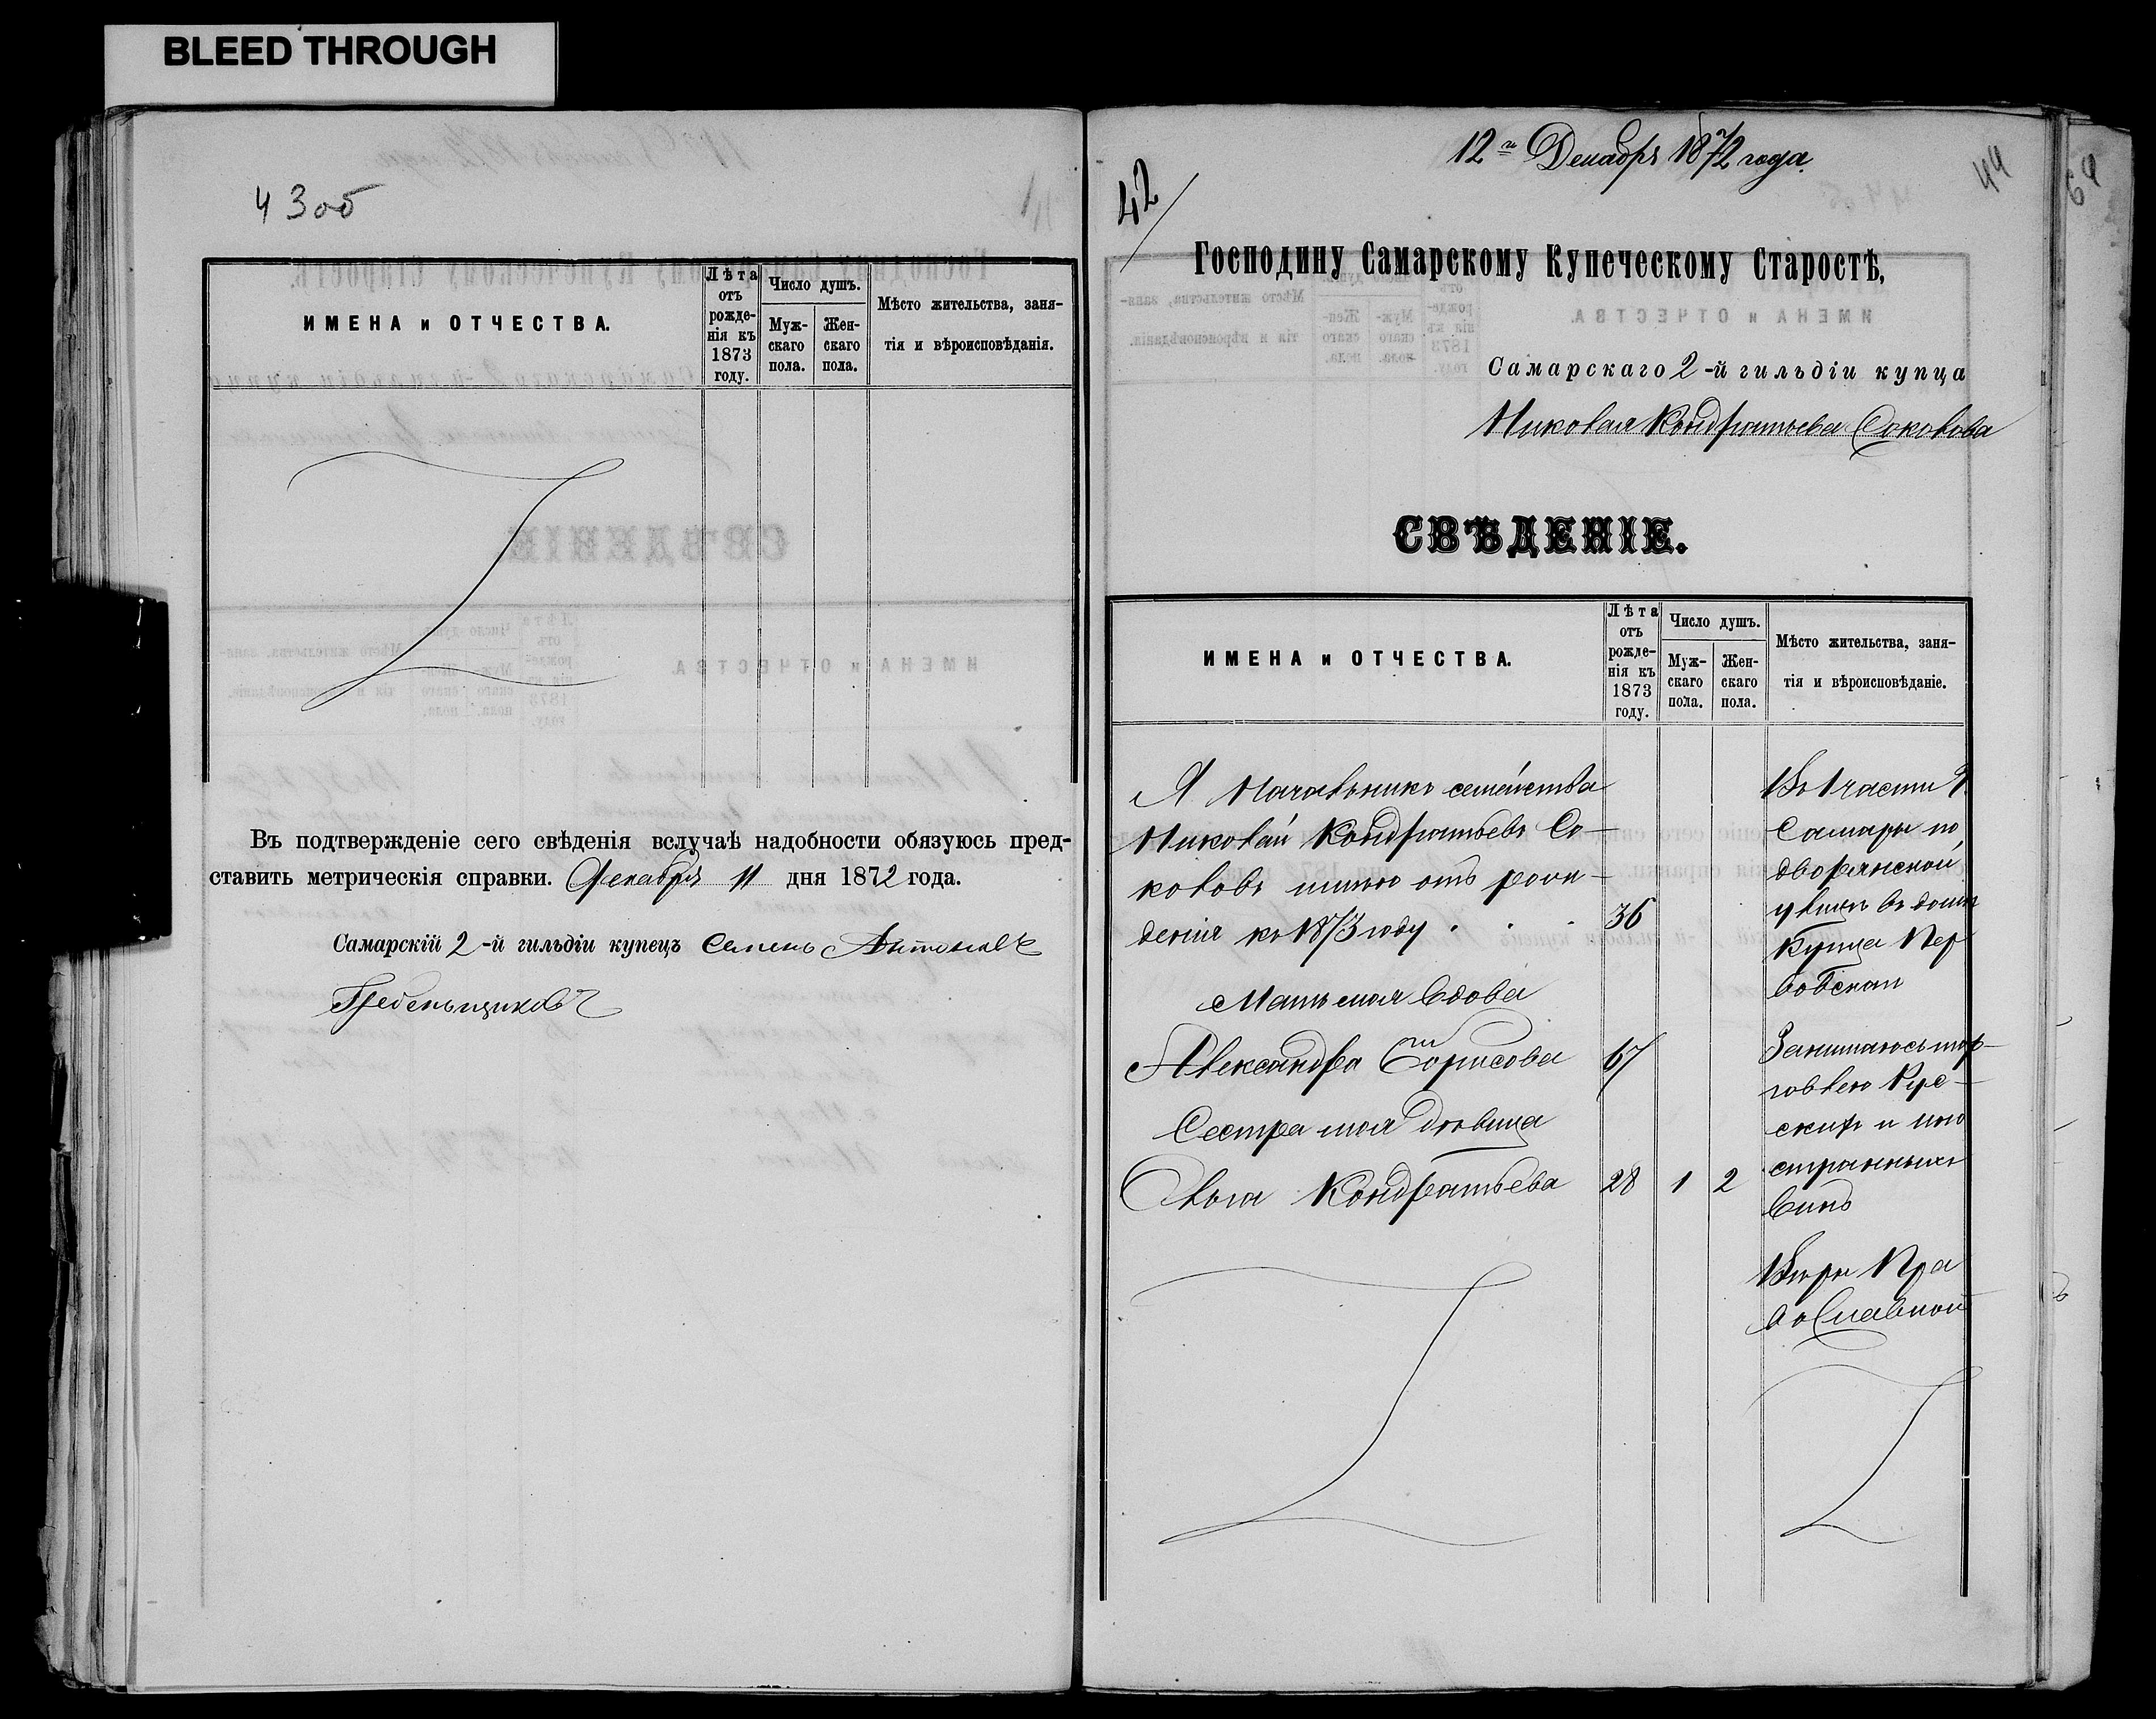 BLEED THROUGH
43об
ИМЕНА и ОТЧЕСТВА.
Лѣта отъ рожденія къ 1873 году.
Число душъ.
Мужскаго пола.
Женскаго пола.
Мѣсто жительства, заня-
тія и вѣроисповѣданія.
Въ подтвержденіе сего свѣденія вслучаѣ надобности обязуюсь пред-
ставить метрическія справки. Декабря 11 дня 1872 года.
Самарскій 2-й гильдіи купецъ Семенъ Антоновъ
Гребеньщиковъ
12го Декабря 1872 года.
42
44
64
Господину Самарскому Купеческому Старостѣ,
Самарскаго 2-й гильдіи купца
Николая Кондратьева Соколова
СВѢДЕНІЕ.
ИМЕНА и ОТЧЕСТВА.
Лѣта отъ рожденія къ 1873 году.
Число душъ.
Мужскаго пола.
Женскаго пола.
Мѣсто жительства, заня-
тія и вѣроисповѣданіе.
Я Начальникъ семейства
Николай Кондратьевъ Со-
коловъ имею отъ рож-
денія къ 1873 году . . . 36
Мать моя вдова
Александра Борисова 67
Сестра моя девица
Ольга Кондратьева 28 1 2
Въ 1 части Г.
Самары по
дворянской
улице въ доме
Купца
Занимаюсь тор-
говлею Рус-
скихъ и ино
странныхъ
Винъ
Веры Пра
вославной